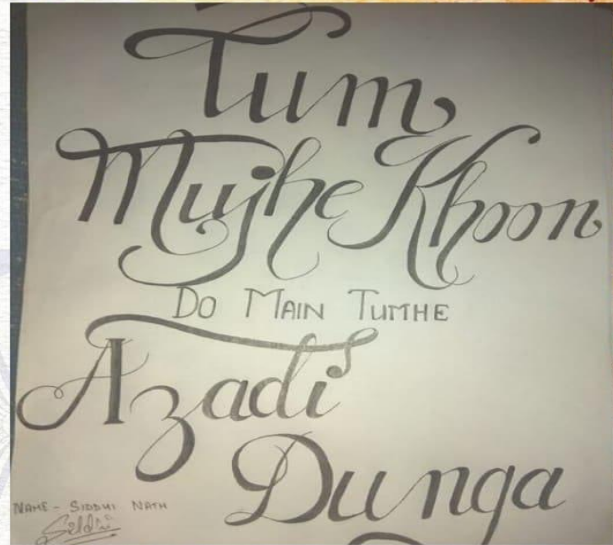 Tum
Mujhe Khoon
DO MAIN TUMHE
Azadi
Dunga
NAME - SIDDHI NATH
Siddhi